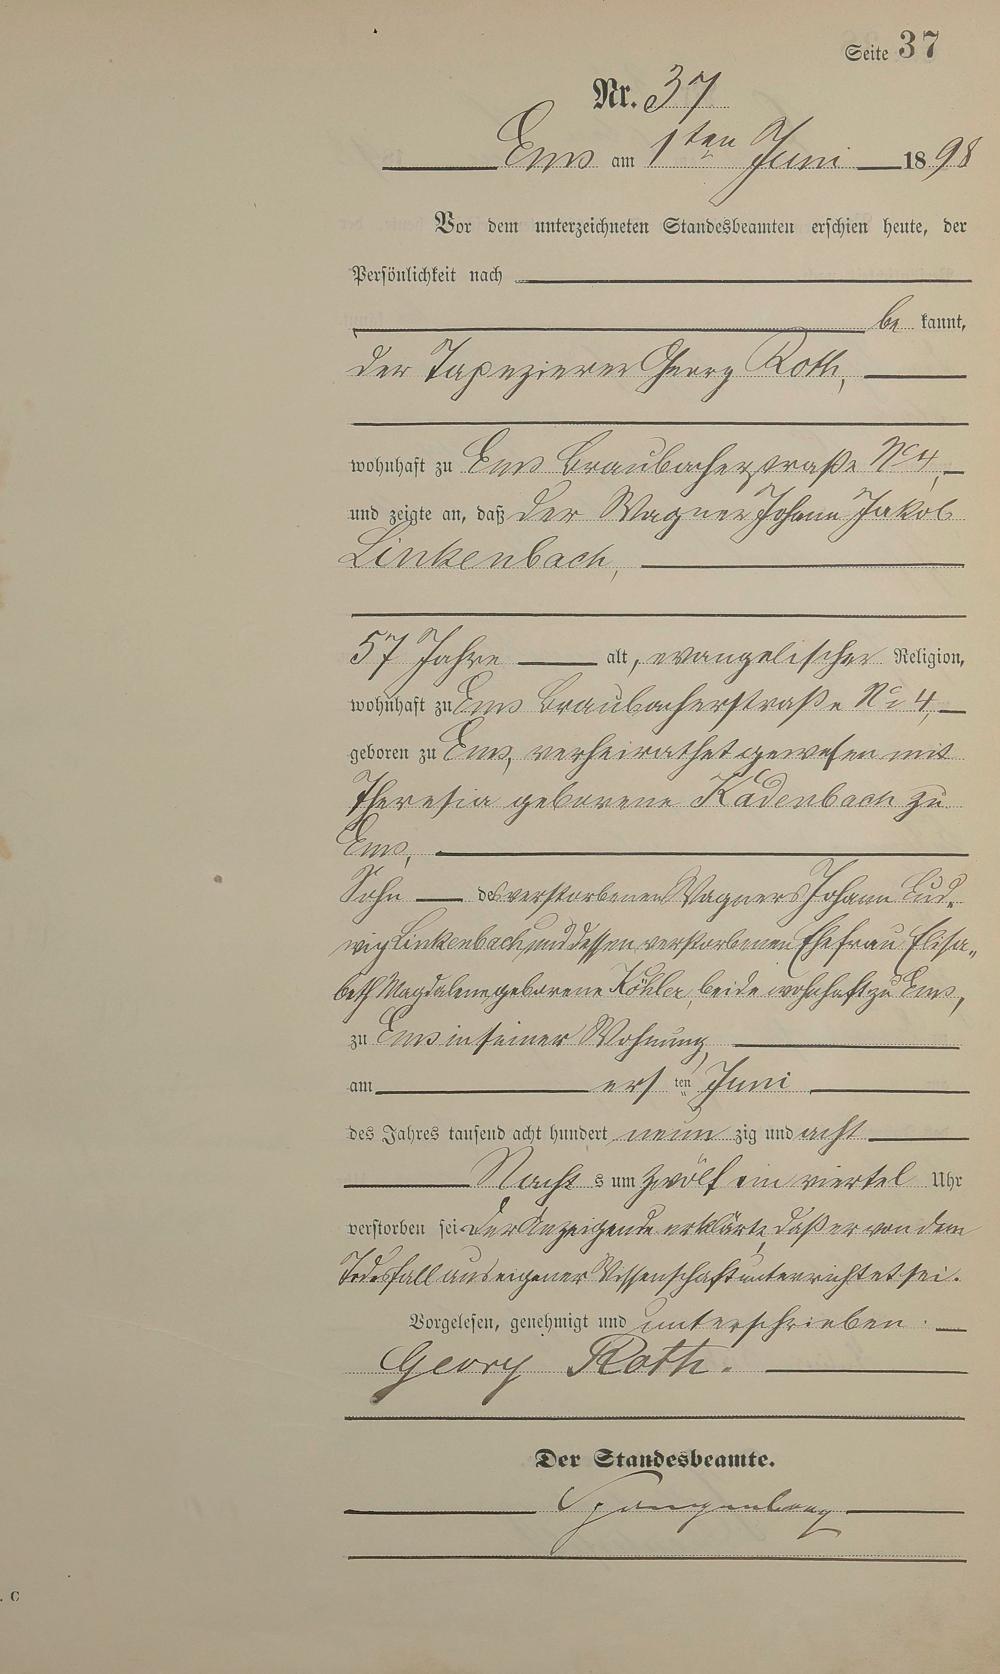 Seite 37
Nr. 37
Ems am 1ten Juni 1898
Vor dem unterzeichneten Standesbeamten erschien heute, der
Persönlichkeit nach
be kannt,
der Tapezierer Georg Roth,
wohnhaft zu Ems Braubacherstraße No 4,
und zeigte an, daß der Wagner Johann Jakob
Linkenbach,
57 Jahre alt, evangelischer Religion,
wohnhaft zu Ems Braubacherstraße No 4,
geboren zu Ems, verheirathet gewesen mit
Theresia geborene Kadenbach zu
Ems,
Sohn des verstorbenen Wagners Johann Lud-
wig Linkenbach und dessen verstorbenen Ehefrau Elisa-
beth Magdalene geborene Köhler, beide wohnhaft zu Ems,
zu Ems in seiner Wohnung,
am ers ten Juni
des Jahres tausend acht hundert neun zig und acht
Nacht s um zwölf ein viertel Uhr
verstorben sei. Der Anzeigende erklärte, daß er von dem
Todesfall aus eigener Wissenschaft unterrichtet sei.
Vorgelesen, genehmigt und unterschrieben.
Georg Roth.
Der Standesbeamte.
Spangenberg
. C